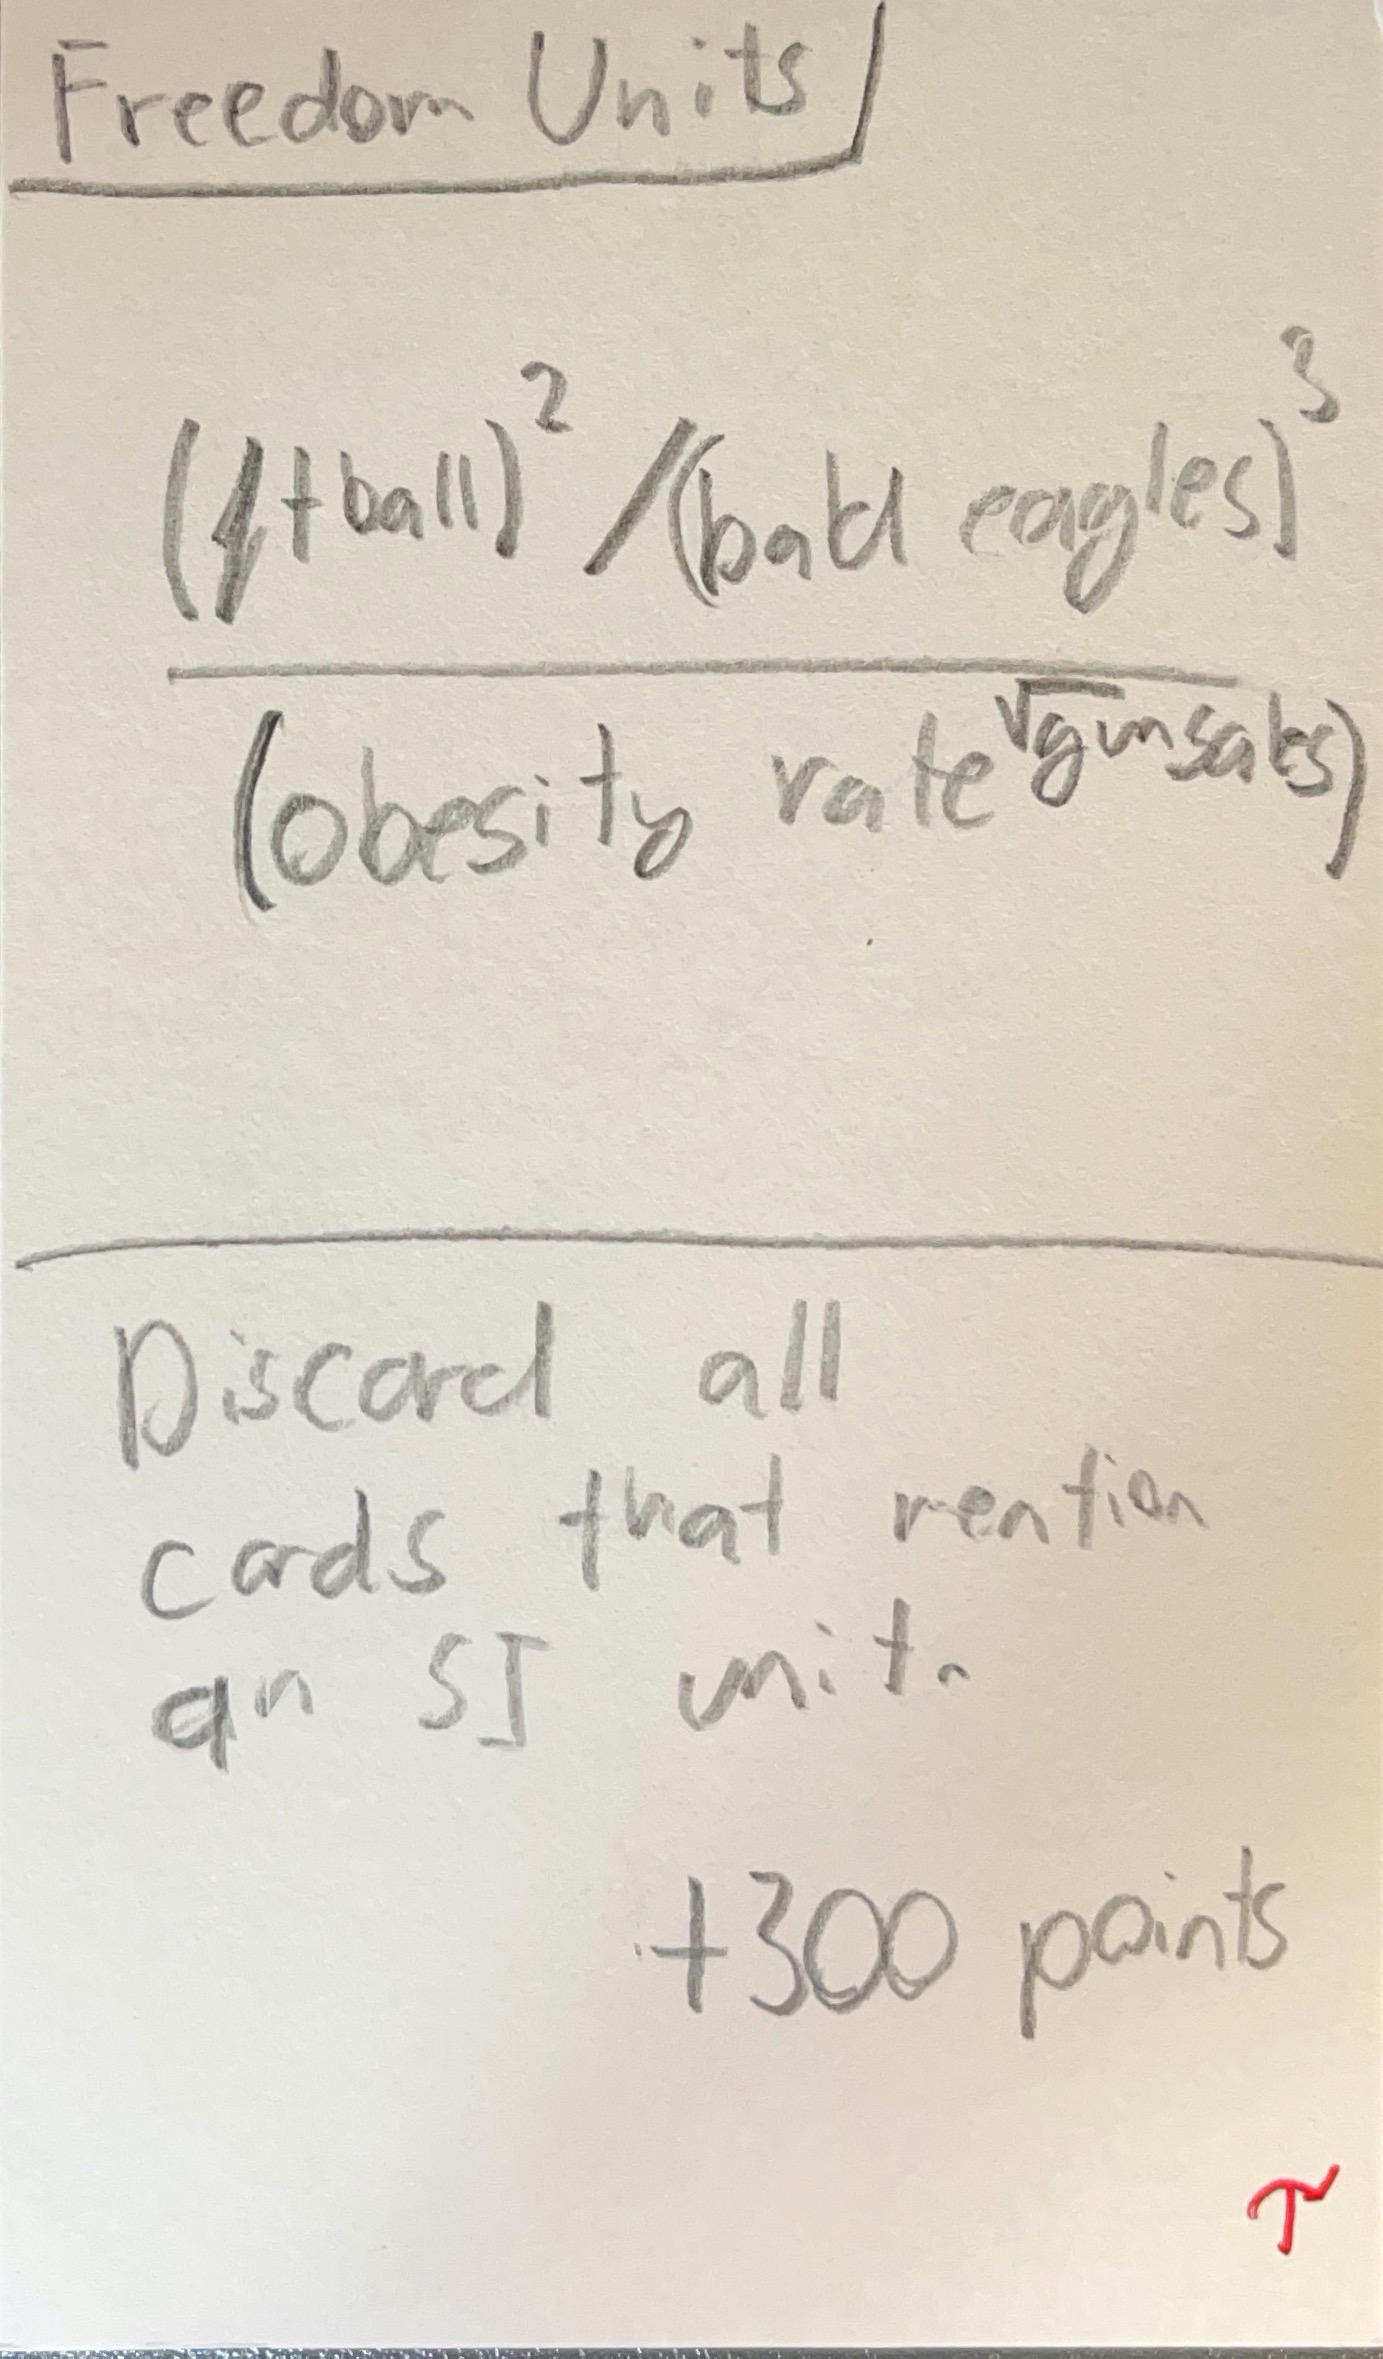 Freedom Units
(ftball)² / (bald eagles)³
(obesity rate^√gun sales)
Discard all
cards that mention
an SI unit.
+300 points
τ